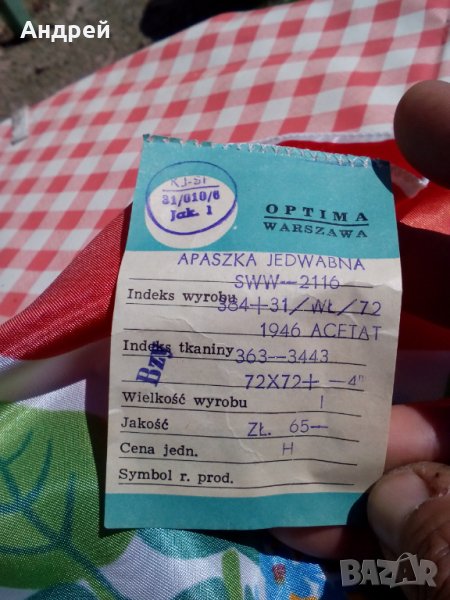 Андрей
KJ-ST
31/010/6
Jak. 1
OPTIMA
WARSZAWA
APASZKA JEDWABNA
SWW--2116
Indeks wyrobu 384+31/WŁ/72
1946 ACETAT
Indeks tkaniny 363--3443
Bzy
72X72+ -4"
Wielkość wyrobu I
Jakość ZŁ. 65-
Cena jedn. H
Symbol r. prod.
BAZAR